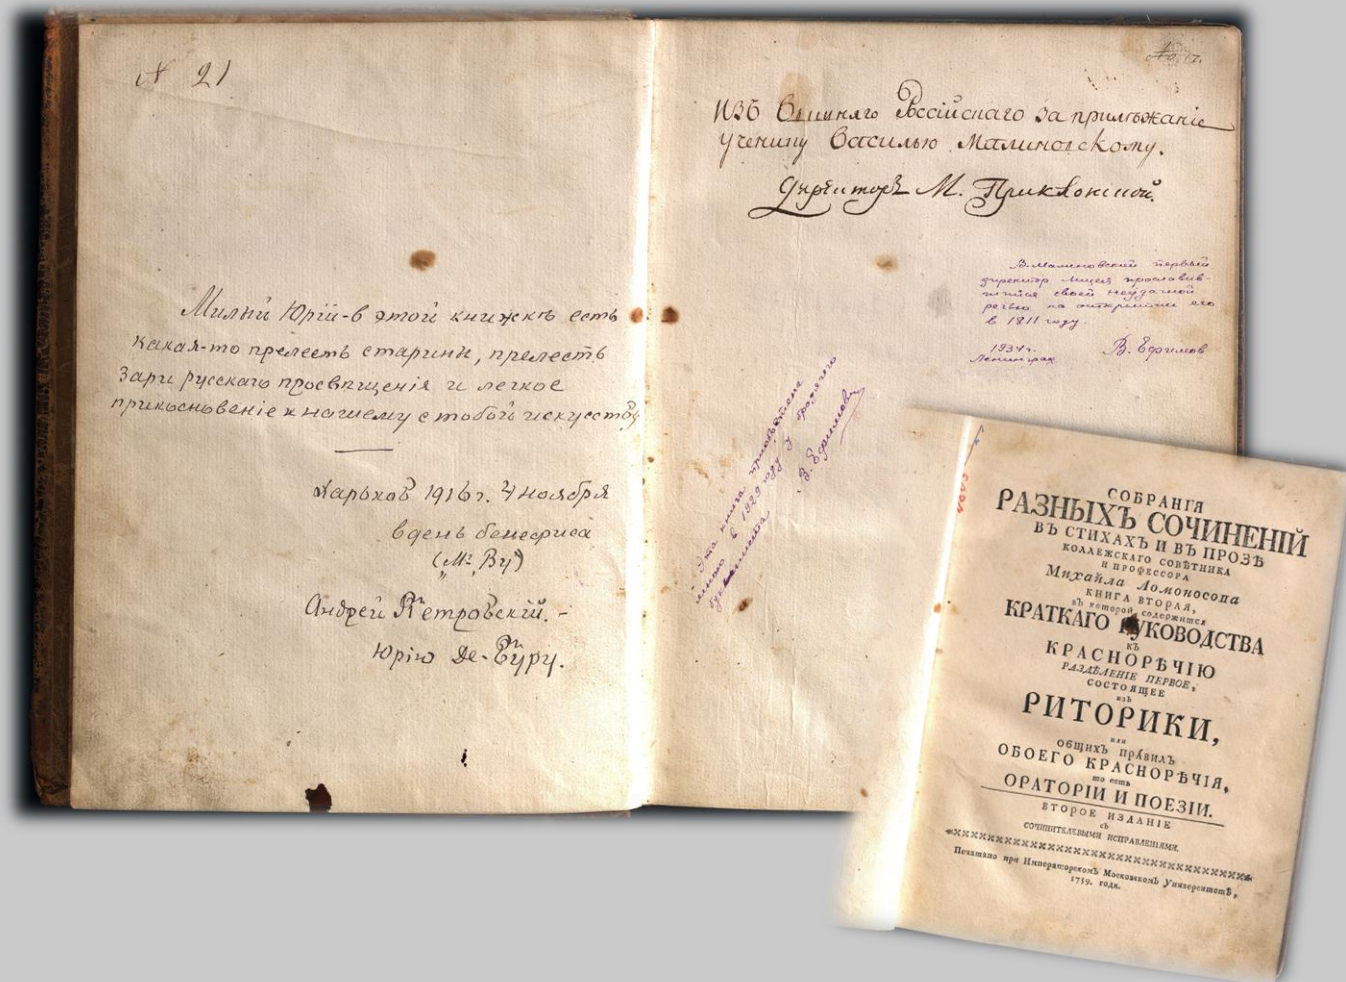 N 21
Милый Юрій - в этой книжкѣ есть
какая-то прелесть старины, прелесть
зари русскаго просвѣщенія и легкое
прикосновеніе к нашему с тобой искусству
Харьков 1916 г. 4 ноября
в день бенефиса
("Mr. Ву")
Андрей Петровскій. -
Юрію Де-Буру.
ИЗЪ Вышняго Россійскаго за прилѣжаніе
ученику Василью Малиновскому.
Директоръ М. Приклонской.
В. Малиновский первый
директор Лицея прославив-
шийся своей неудачной
речью на открытии его
в 1811 году.
1934 г.
Ленинград
В. Ефимов
Эта книга приобретена
мною в 1929 году у бродячего
букиниста В. Ефимов
СОБРАНІЯ
РАЗНЫХЪ СОЧИНЕНІЙ
ВЪ СТИХАХЪ И ВЪ ПРОЗѢ
КОЛЛЕЖСКАГО СОВѢТНИКА
И ПРОФЕССОРА
Михайла Ломоносова
КНИГА ВТОРАЯ,
въ которой содержится
КРАТКАГО РУКОВОДСТВА
КЪ
КРАСНОРѢЧІЮ
РАЗДѢЛЕНІЕ ПЕРВОЕ,
СОСТОЯЩЕЕ
изъ
РИТОРИКИ,
или
ОБЩИХЪ ПРАВИЛЪ
ОБОЕГО КРАСНОРѢЧІЯ,
то есть
ОРАТОРІИ И ПОЕЗІИ.
ВТОРОЕ ИЗДАНІЕ
съ
СОЧИНИТЕЛЕВЫМИ ИСПРАВЛЕНІЯМИ.
Печатано при Императорскомъ Московскомъ Университетѣ,
1759. года.